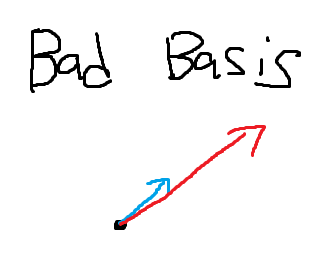 Bad Basis